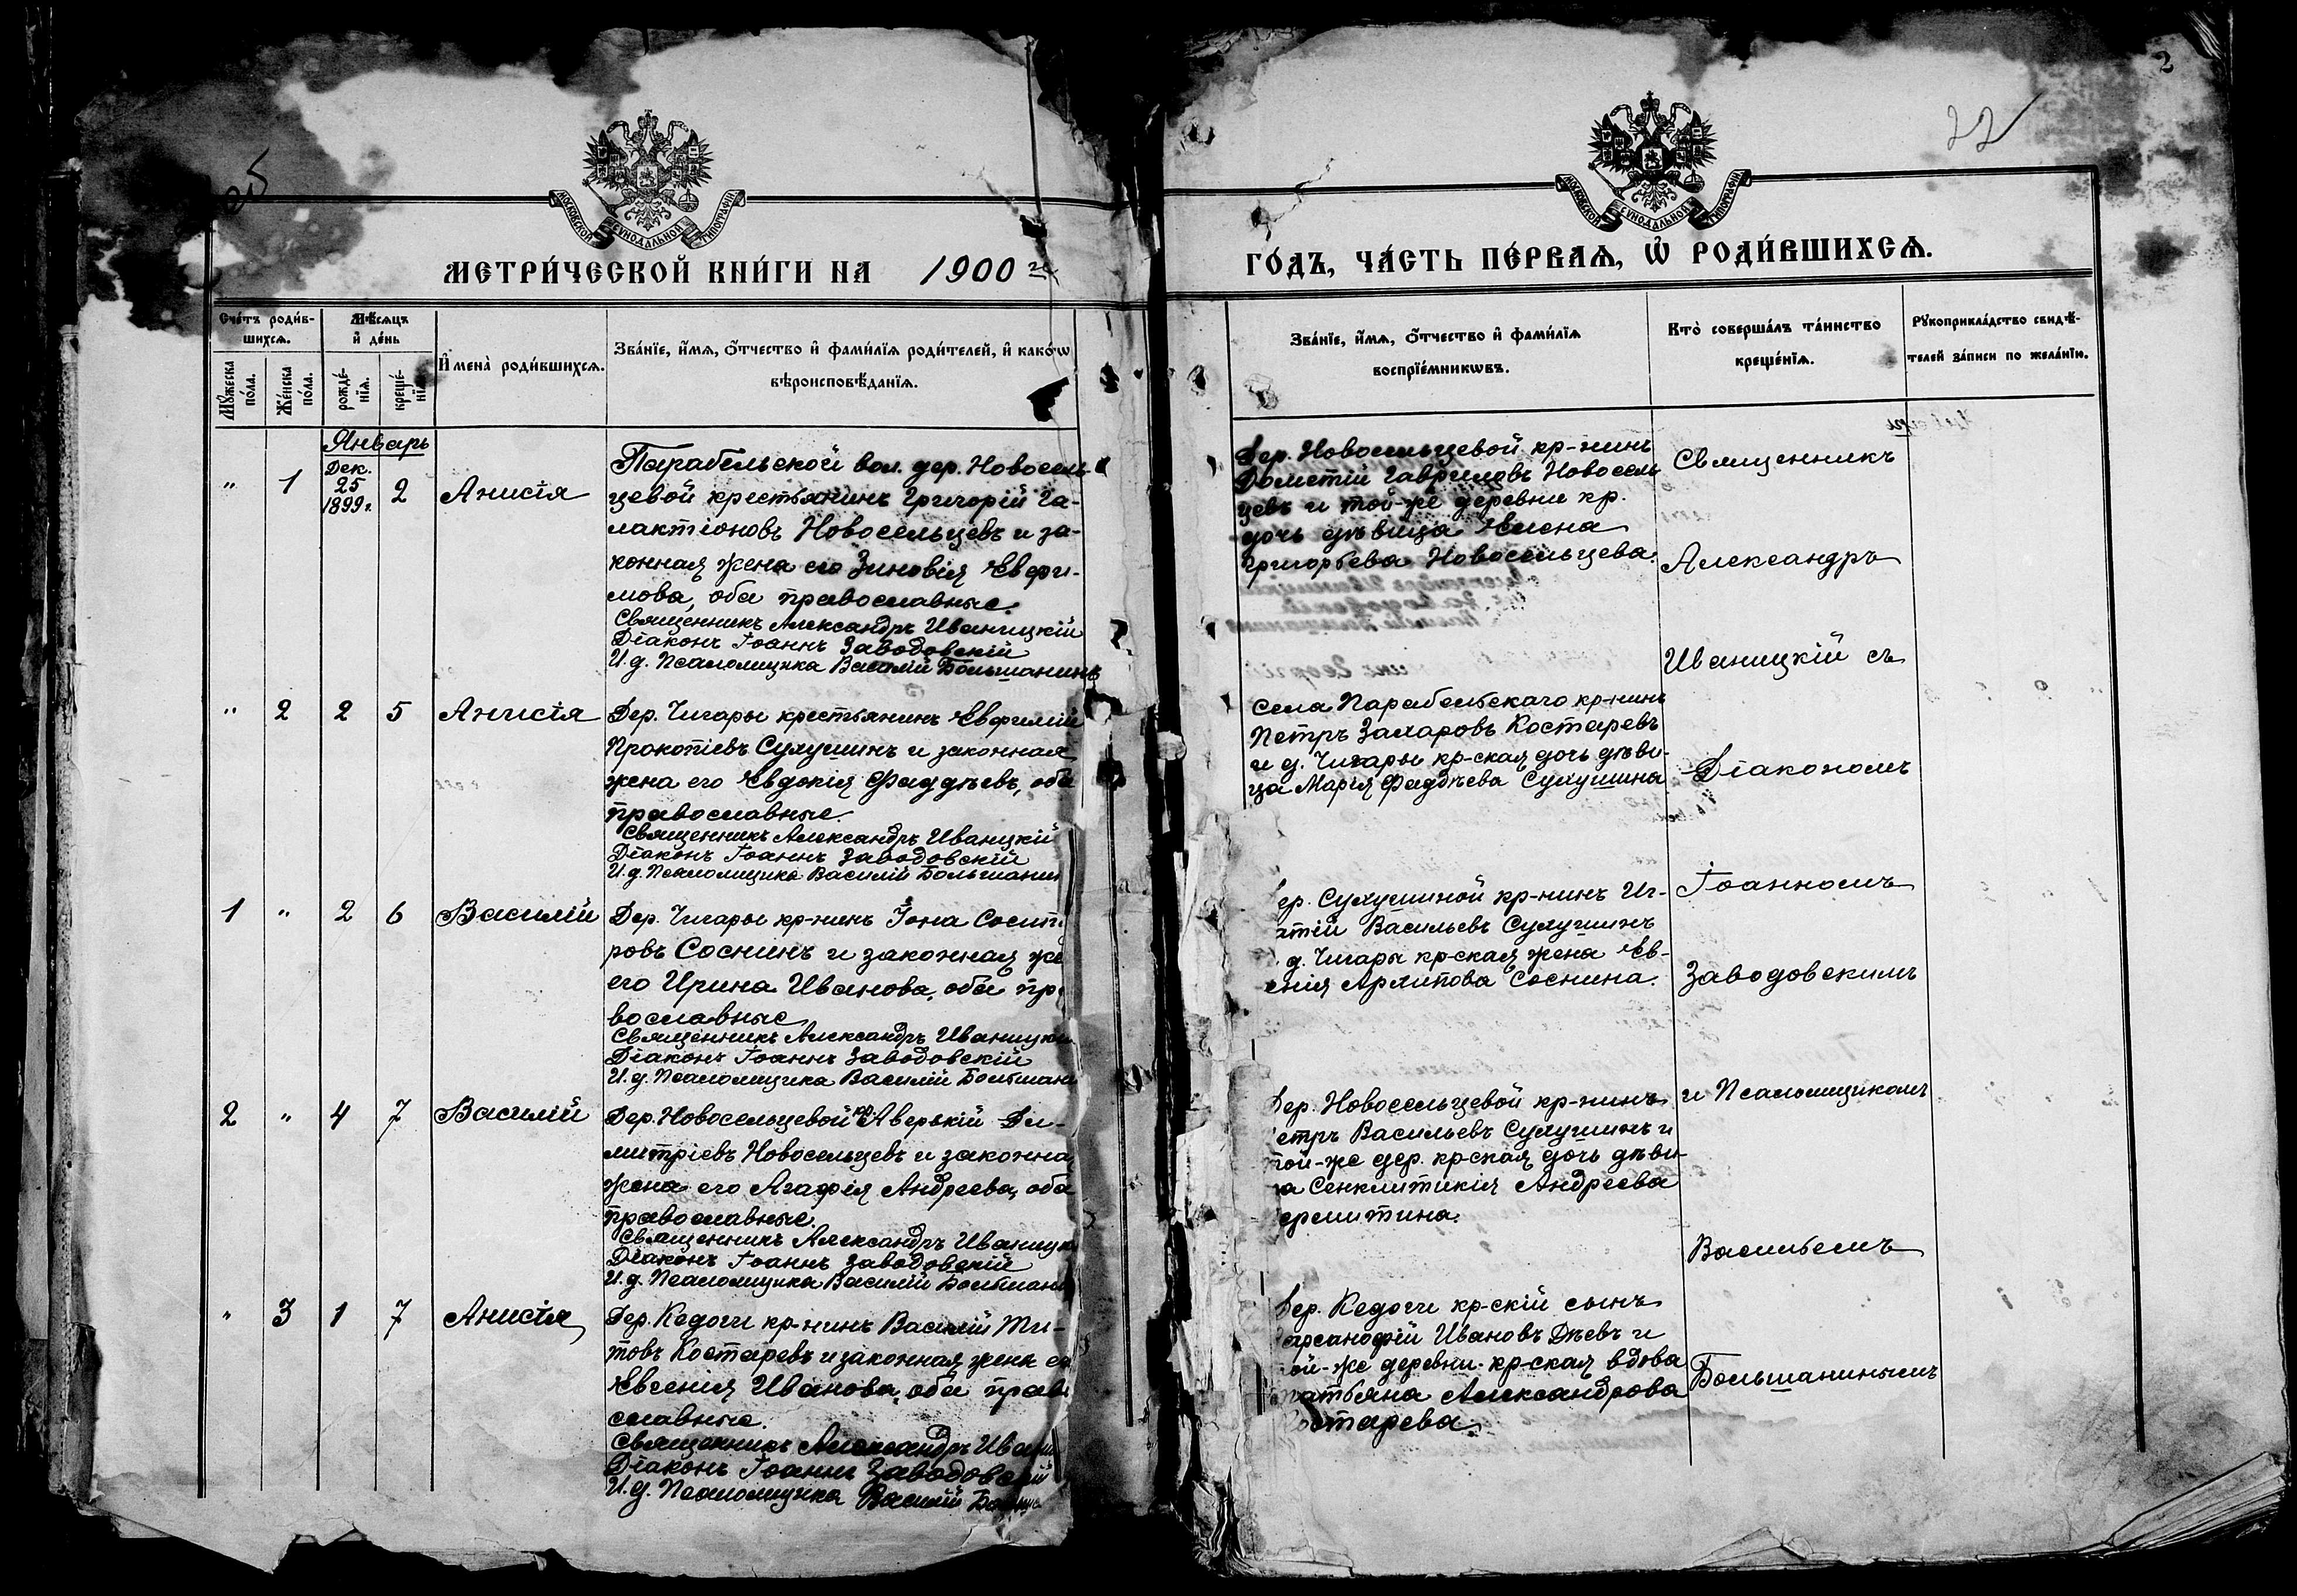 2
22
МОСКОВСКОЙ СѴНОДАЛЬНОЙ ТИПОГРАФІИ
МЕТРИ́ЧЕСКОЙ КНИ́ГИ НА 1900 г.
Сче́тъ роди́в-
шихсѧ.
Мꙋ́жеска по́ла.
Же́нска по́ла.
Мѣ́сѧцъ
и҆ де́нь
рожде́-
нїѧ.
креще́-
нїѧ.
И҆мена̀ роди́вшихсѧ.
Зва́нїе, и҆́мѧ, ѻ҆́тчество и҆ фами́лїѧ роди́телей, и҆ како́гѡ
вѣроисповѣ́данїѧ.
Январь
" 1 Дек. 25 1899 г. 2 Анисія
Парабельской вол. дер. Новосель
цевой крестьянинъ Григорій Га-
лактіоновъ Новосельцевъ и за-
конная жена его Зиновія Евфи-
мова, оба православные.
Священникъ Александръ Иваницкій
Діаконъ Іоаннъ Заводовскій
И. д. Псаломщика Василій Большанинъ
" 2 2 5 Анисія
Дер. Чигары крестьянинъ Евфимій
Прокопіевъ Сухушинъ и законная
жена его Евдокія Фаддѣевъ, оба
православные.
Священникъ Александръ Иваницкій
Діаконъ Іоаннъ Заводовскій
И. д. Псаломщика Василій Большанин
1 " 2 6 Василій
Дер. Чигары кр-нинъ Іона Сосип
ровъ Соснинъ и законная же
его Ирина Иванова, оба пр
вославные
Священникъ Александръ Иваницкі
Діаконъ Іоаннъ Заводовскій
И. д. Псаломщика Василій Большани
2 " 4 7 Василій
Дер. Новосельцевой кр. Аверкій Ди-
митріевъ Новосельцевъ и законна
жена его Агафія Андреева, оба
православные.
Священникъ Александръ Иваницк
Діаконъ Іоаннъ Заводовскій
И. д. Псаломщика Василій Большани
" 3 1 7 Анисія
Дер. Кедоги кр-нинъ Василій Ти-
товъ Костаревъ и законная жена ег
Евгенія Иванова, оба право
славные.
Священникъ Александръ Ивани
Діаконъ Іоаннъ Заводовскій
И. д. Псаломщика Василій Больш
МОСКОВСКОЙ СѴНОДАЛЬНОЙ ТИПОГРАФІИ
ГО́ДЪ, ЧА́СТЬ ПЕ́РВАѦ, Ѡ҆ РОДИ́ВШИХСѦ.
Зва́нїе, и҆́мѧ, ѻ҆́тчество и҆ фами́лїѧ
воспрїе́мникѡвъ.
Кто̀ соверша́лъ та́инство
креще́нїѧ.
Рꙋкоприкла́дство свидѣ́-
телей за́писи по жела́нїю.
Дер. Новосельцевой кр-нинъ
Дометій Гавриловъ Новосель
цевъ и той-же деревни кр.
дочь дѣвица Елена
Григорьева Новосельцева.
Села Парабельскаго кр-нинъ
Петръ Захаровъ Костаревъ
и д. Чигары кр-ская дочь дѣви-
ца Марія Фаддѣева Сухушина
ер. Сухушиной кр-нинъ Иг-
атій Васильевъ Сухушинъ
д. Чигары кр-ская жена Ев-
енія Архипова Соснина.
Дер. Новосельцевой кр-нинъ
етръ Васильевъ Сухушинъ и
той-же дер. кр-ская дочь дѣви-
а Сенклитикія Андреева
ермитина.
Дер. Кедоги кр-скій сынъ
арсанофій Ивановъ Дѣевъ и
ой-же деревни кр-ская вдова
атьяна Александрова
остарева.
Священникъ
Александръ
Иваницкій съ
Діакономъ
Іоанномъ
Заводовскимъ
и Псаломщикомъ
Васильемъ
Большанинымъ